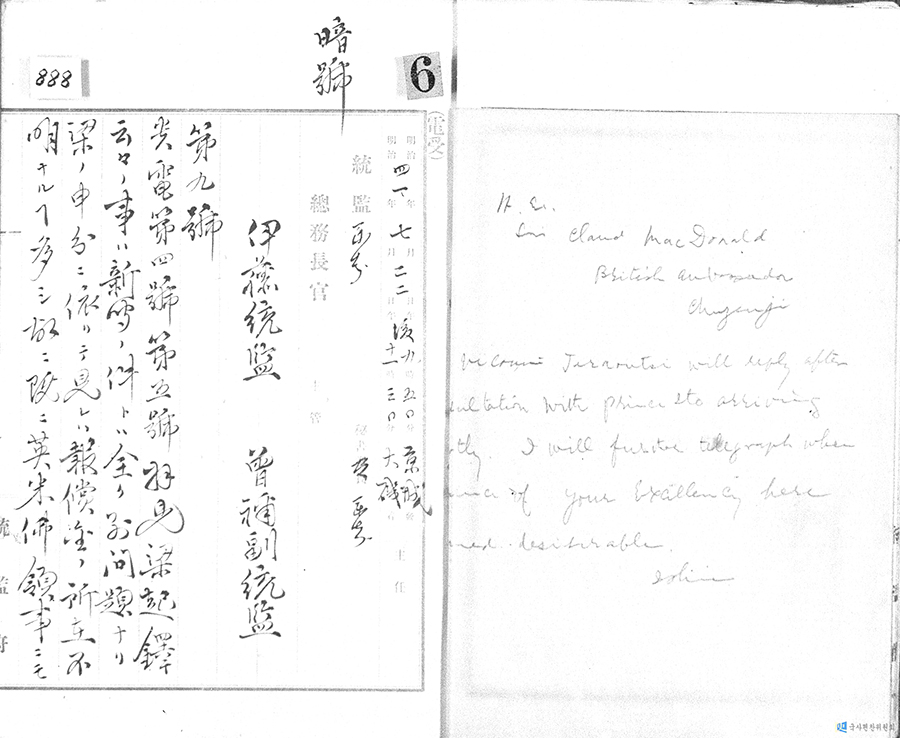 6
暗號
888
電受
明治四一年七月二二日後九時五〇分京城
明治 年 月 日 十一時三〇分大磯
主任
統監
秘書官
總務長官
主管
伊藤統監 曾禰副統監
第九號
貴電第四號第五號拝見梁起鐸
云々ノ事ハ新聞ノ件トハ全ク別問題ナリ
梁ノ申分ニ依リテ見レハ報償金ノ所在不
明ナルヿ多シ故ニ既ニ英米佛領事ニモ
統監府
H. E.
Sir Claud MacDonald
British Ambassador
Chuzenji
will reply after
sultation with prince Ito arriving
tly. I will further telegraph when
of your Excellency here
med desirable.
Ishii
국사편찬위원회